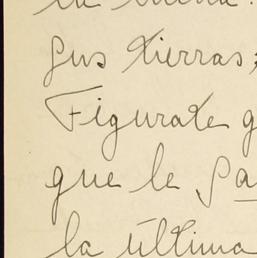 sus tierras;
Figurate g
que le pa
la última